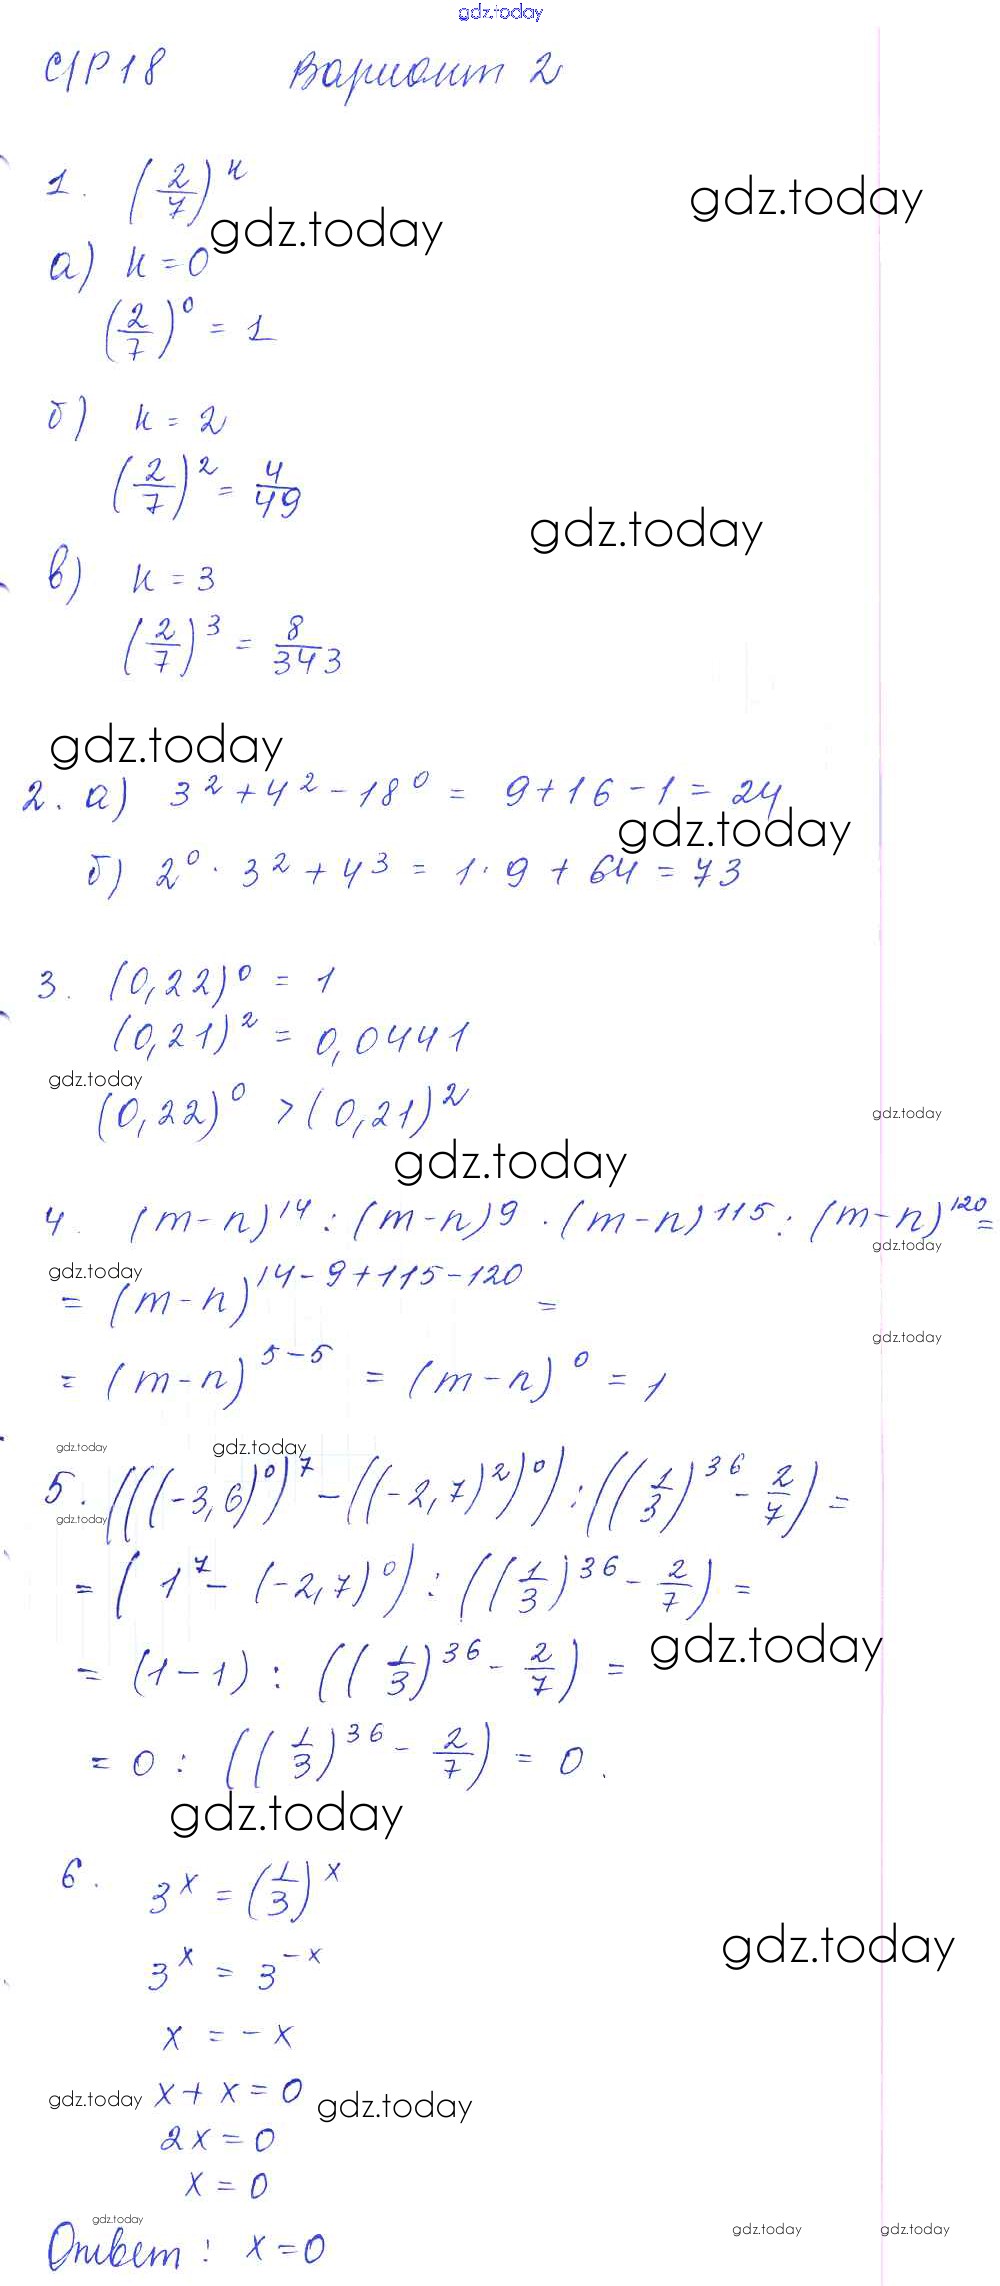 gdz.today
С/Р 18 Вариант 2
1. (2/7)^к
gdz.today
gdz.today
а) к = 0
(2/7)^0 = 1
б) к = 2
(2/7)^2 = 4/49
gdz.today
в) к = 3
(2/7)^3 = 8/343
gdz.today
2. а) 3^2 + 4^2 - 18^0 = 9 + 16 - 1 = 24
gdz.today
б) 2^0 · 3^2 + 4^3 = 1 · 9 + 64 = 73
3. (0,22)^0 = 1
(0,21)^2 = 0,0441
gdz.today
(0,22)^0 > (0,21)^2
gdz.today
gdz.today
4. (m-n)^14 : (m-n)^9 · (m-n)^115 : (m-n)^120 =
gdz.today
gdz.today
= (m-n)^(14-9+115-120) =
gdz.today
= (m-n)^(5-5) = (m-n)^0 = 1
gdz.today
gdz.today
5. (((-3,6)^0)^7 - ((-2,7)^2)^0) : ((1/3)^36 - 2/7) =
gdz.today
= (1^7 - (-2,7)^0) : ((1/3)^36 - 2/7) =
gdz.today
= (1-1) : ((1/3)^36 - 2/7) =
= 0 : ((1/3)^36 - 2/7) = 0.
gdz.today
6. 3^x = (1/3)^x
gdz.today
3^x = 3^-x
x = -x
gdz.today
x + x = 0
gdz.today
2x = 0
x = 0
gdz.today
Ответ: x = 0
gdz.today
gdz.today